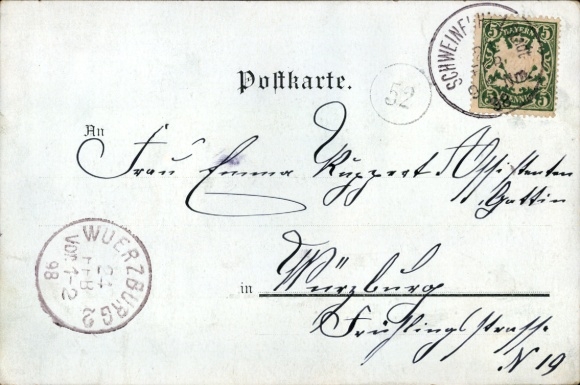 BAYERN
5 5
PFENNIG
5 5
SCHWEINFURT
Postkarte.
52
An
Frau Emma Ruppert Assistenten
Gattin
WUERZBURG 2
21
FEB
VOR. 1-2
98
in Würzburg
Frühlingsstrasse
N 19